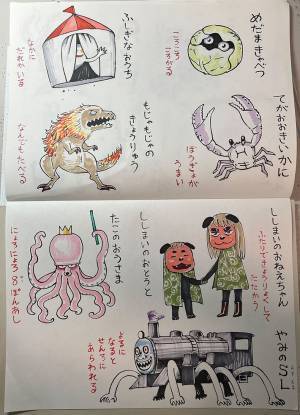 めだまきゃべつ
ころころ
ころがる
ふしぎなおうち
なかに
だれかいる
てがおおきいかに
ぼうぎょが
うまい
もじゃもじゃの
きょうりゅう
なんでもたべる
ししまいのおねえちゃん
ふたりできょうりょくして
たたかう
ししまいのおとうと
たこのおうさま
にょろにょろ8ぽんあし
やみのSL
よるに
なると
せんろに
あらわれる